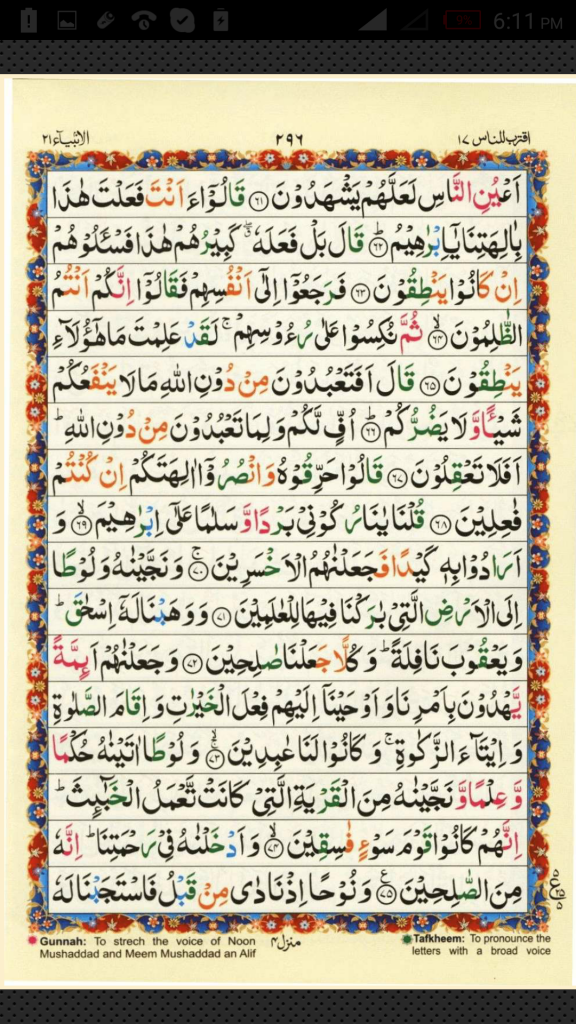 95 6:11 PM
اقترب للناس ١٧ ٢٩٦ الانبيآء ٢١
اَعْيُنِ النَّاسِ لَعَلَّهُمْ يَشْهَدُوْنَ ﴿٦١﴾ قَالُوْۤا ءَاَنْتَ فَعَلْتَ هٰذَا
بِاٰلِهَتِنَا يٰۤاِبْرٰهِيْمُ ﴿٦٢﴾ؕ قَالَ بَلْ فَعَلَهٗ ۖۗ كَبِيْرُهُمْ هٰذَا فَسْـَٔلُوْهُمْ
اِنْ كَانُوْا يَنْطِقُوْنَ ﴿٦٣﴾ فَرَجَعُوْۤا اِلٰۤى اَنْفُسِهِمْ فَقَالُوْۤا اِنَّكُمْ اَنْتُمُ
الظّٰلِمُوْنَ ﴿٦٤﴾ۙ ثُمَّ نُكِسُوْا عَلٰى رُءُوْسِهِمْ ۚ لَقَدْ عَلِمْتَ مَا هٰۤؤُلَآءِ
يَنْطِقُوْنَ ﴿٦٥﴾ قَالَ اَفَتَعْبُدُوْنَ مِنْ دُوْنِ اللّٰهِ مَا لَا يَنْفَعُكُمْ
شَيْـًٔا وَّلَا يَضُرُّكُمْ ﴿٦٦﴾ؕ اُفٍّ لَّكُمْ وَلِمَا تَعْبُدُوْنَ مِنْ دُوْنِ اللّٰهِ ؕ
اَفَلَا تَعْقِلُوْنَ ﴿٦٧﴾ قَالُوْا حَرِّقُوْهُ وَانْصُرُوْۤا اٰلِهَتَكُمْ اِنْ كُنْتُمْ
فٰعِلِيْنَ ﴿٦٨﴾ قُلْنَا يٰنَارُ كُوْنِيْ بَرْدًا وَّسَلٰمًا عَلٰۤى اِبْرٰهِيْمَ ﴿٦٩﴾ۙ وَ
اَرَادُوْا بِهٖ كَيْدًا فَجَعَلْنٰهُمُ الْاَخْسَرِيْنَ ﴿٧٠﴾ۚ وَنَجَّيْنٰهُ وَلُوْطًا
اِلَى الْاَرْضِ الَّتِيْ بٰرَكْنَا فِيْهَا لِلْعٰلَمِيْنَ ﴿٧١﴾ وَوَهَبْنَا لَهٗۤ اِسْحٰقَ ؕ
وَيَعْقُوْبَ نَافِلَةً ؕ وَكُلًّا جَعَلْنَا صٰلِحِيْنَ ﴿٧٢﴾ وَجَعَلْنٰهُمْ اَئِمَّةً
يَّهْدُوْنَ بِاَمْرِنَا وَاَوْحَيْنَاۤ اِلَيْهِمْ فِعْلَ الْخَيْرٰتِ وَاِقَامَ الصَّلٰوةِ
وَاِيْتَآءَ الزَّكٰوةِ ۚ وَكَانُوْا لَنَا عٰبِدِيْنَ ﴿٧٣﴾ۙ وَلُوْطًا اٰتَيْنٰهُ حُكْمًا
وَّعِلْمًا وَّنَجَّيْنٰهُ مِنَ الْقَرْيَةِ الَّتِيْ كَانَتْ تَّعْمَلُ الْخَبٰٓئِثَ ؕ
اِنَّهُمْ كَانُوْا قَوْمَ سَوْءٍ فٰسِقِيْنَ ﴿٧٤﴾ۙ وَاَدْخَلْنٰهُ فِيْ رَحْمَتِنَا ؕ اِنَّهٗ
مِنَ الصّٰلِحِيْنَ ﴿٧٥﴾ وَنُوْحًا اِذْ نَادٰى مِنْ قَبْلُ فَاسْتَجَبْنَا لَهٗ
منزل ٤
Gunnah: To strech the voice of Noon
Mushaddad and Meem Mushaddad an Alif
Tafkheem: To pronounce the
letters with a broad voice